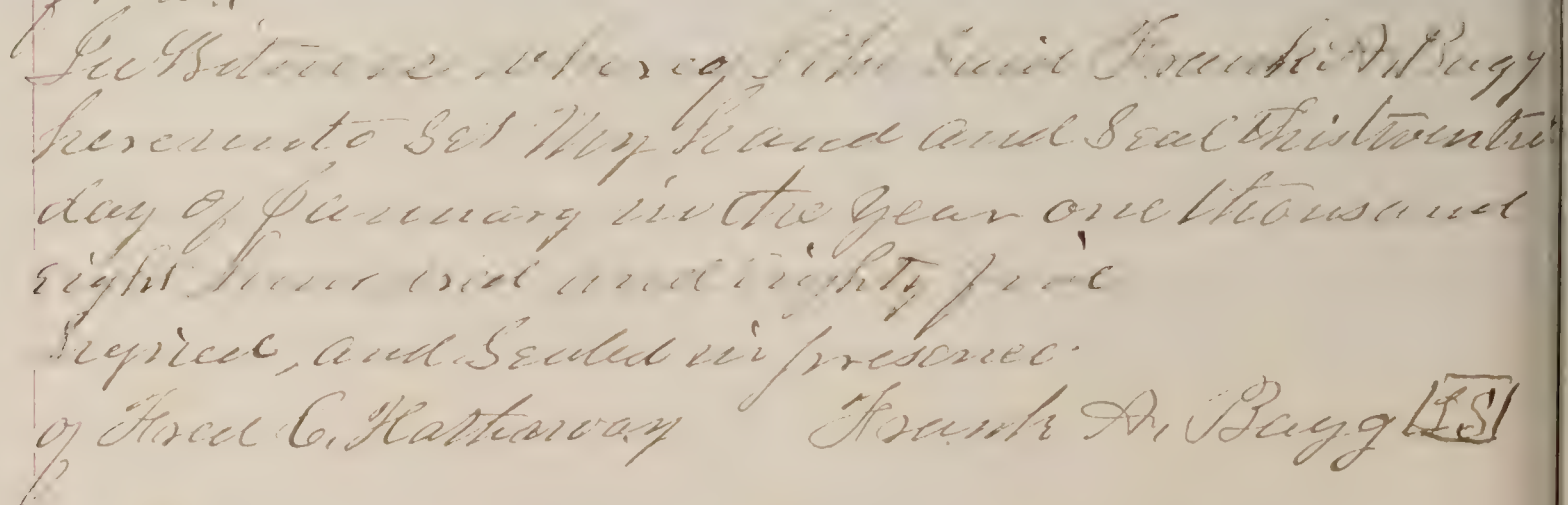 In Witness whereof I the said Frank A. Bagg
hereunto Set My hand and Seal this twentie
day of January in the year one thousand
eight hundred and eighty five
Signed, and Sealed in presence
of Fred C. Hathaway Frank A. Bagg LS